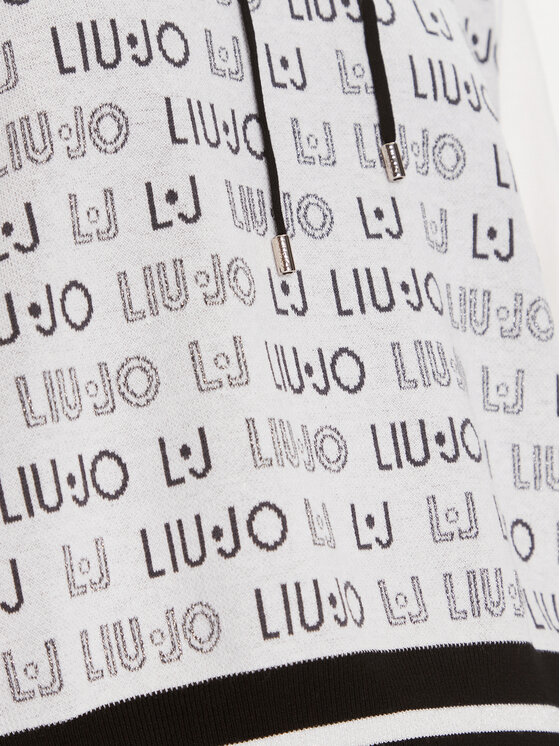 LIU·JO
LIU·JO L·J LIU·JO L·J
LIU·JO LIU·JO L·J LIU·JO
L·J L·J LIU·JO L·J L·J L·J
L·J LIU·JO L·J LIU·JO LIU·JO
LIU·JO L·J LIU·JO L·J L·J
LIU·JO L·J LIU·JO LIU·JO
L·J LIU·JO L·J L·J
L·J LIU·JO LIU·JO L·J L·J LIU·JO